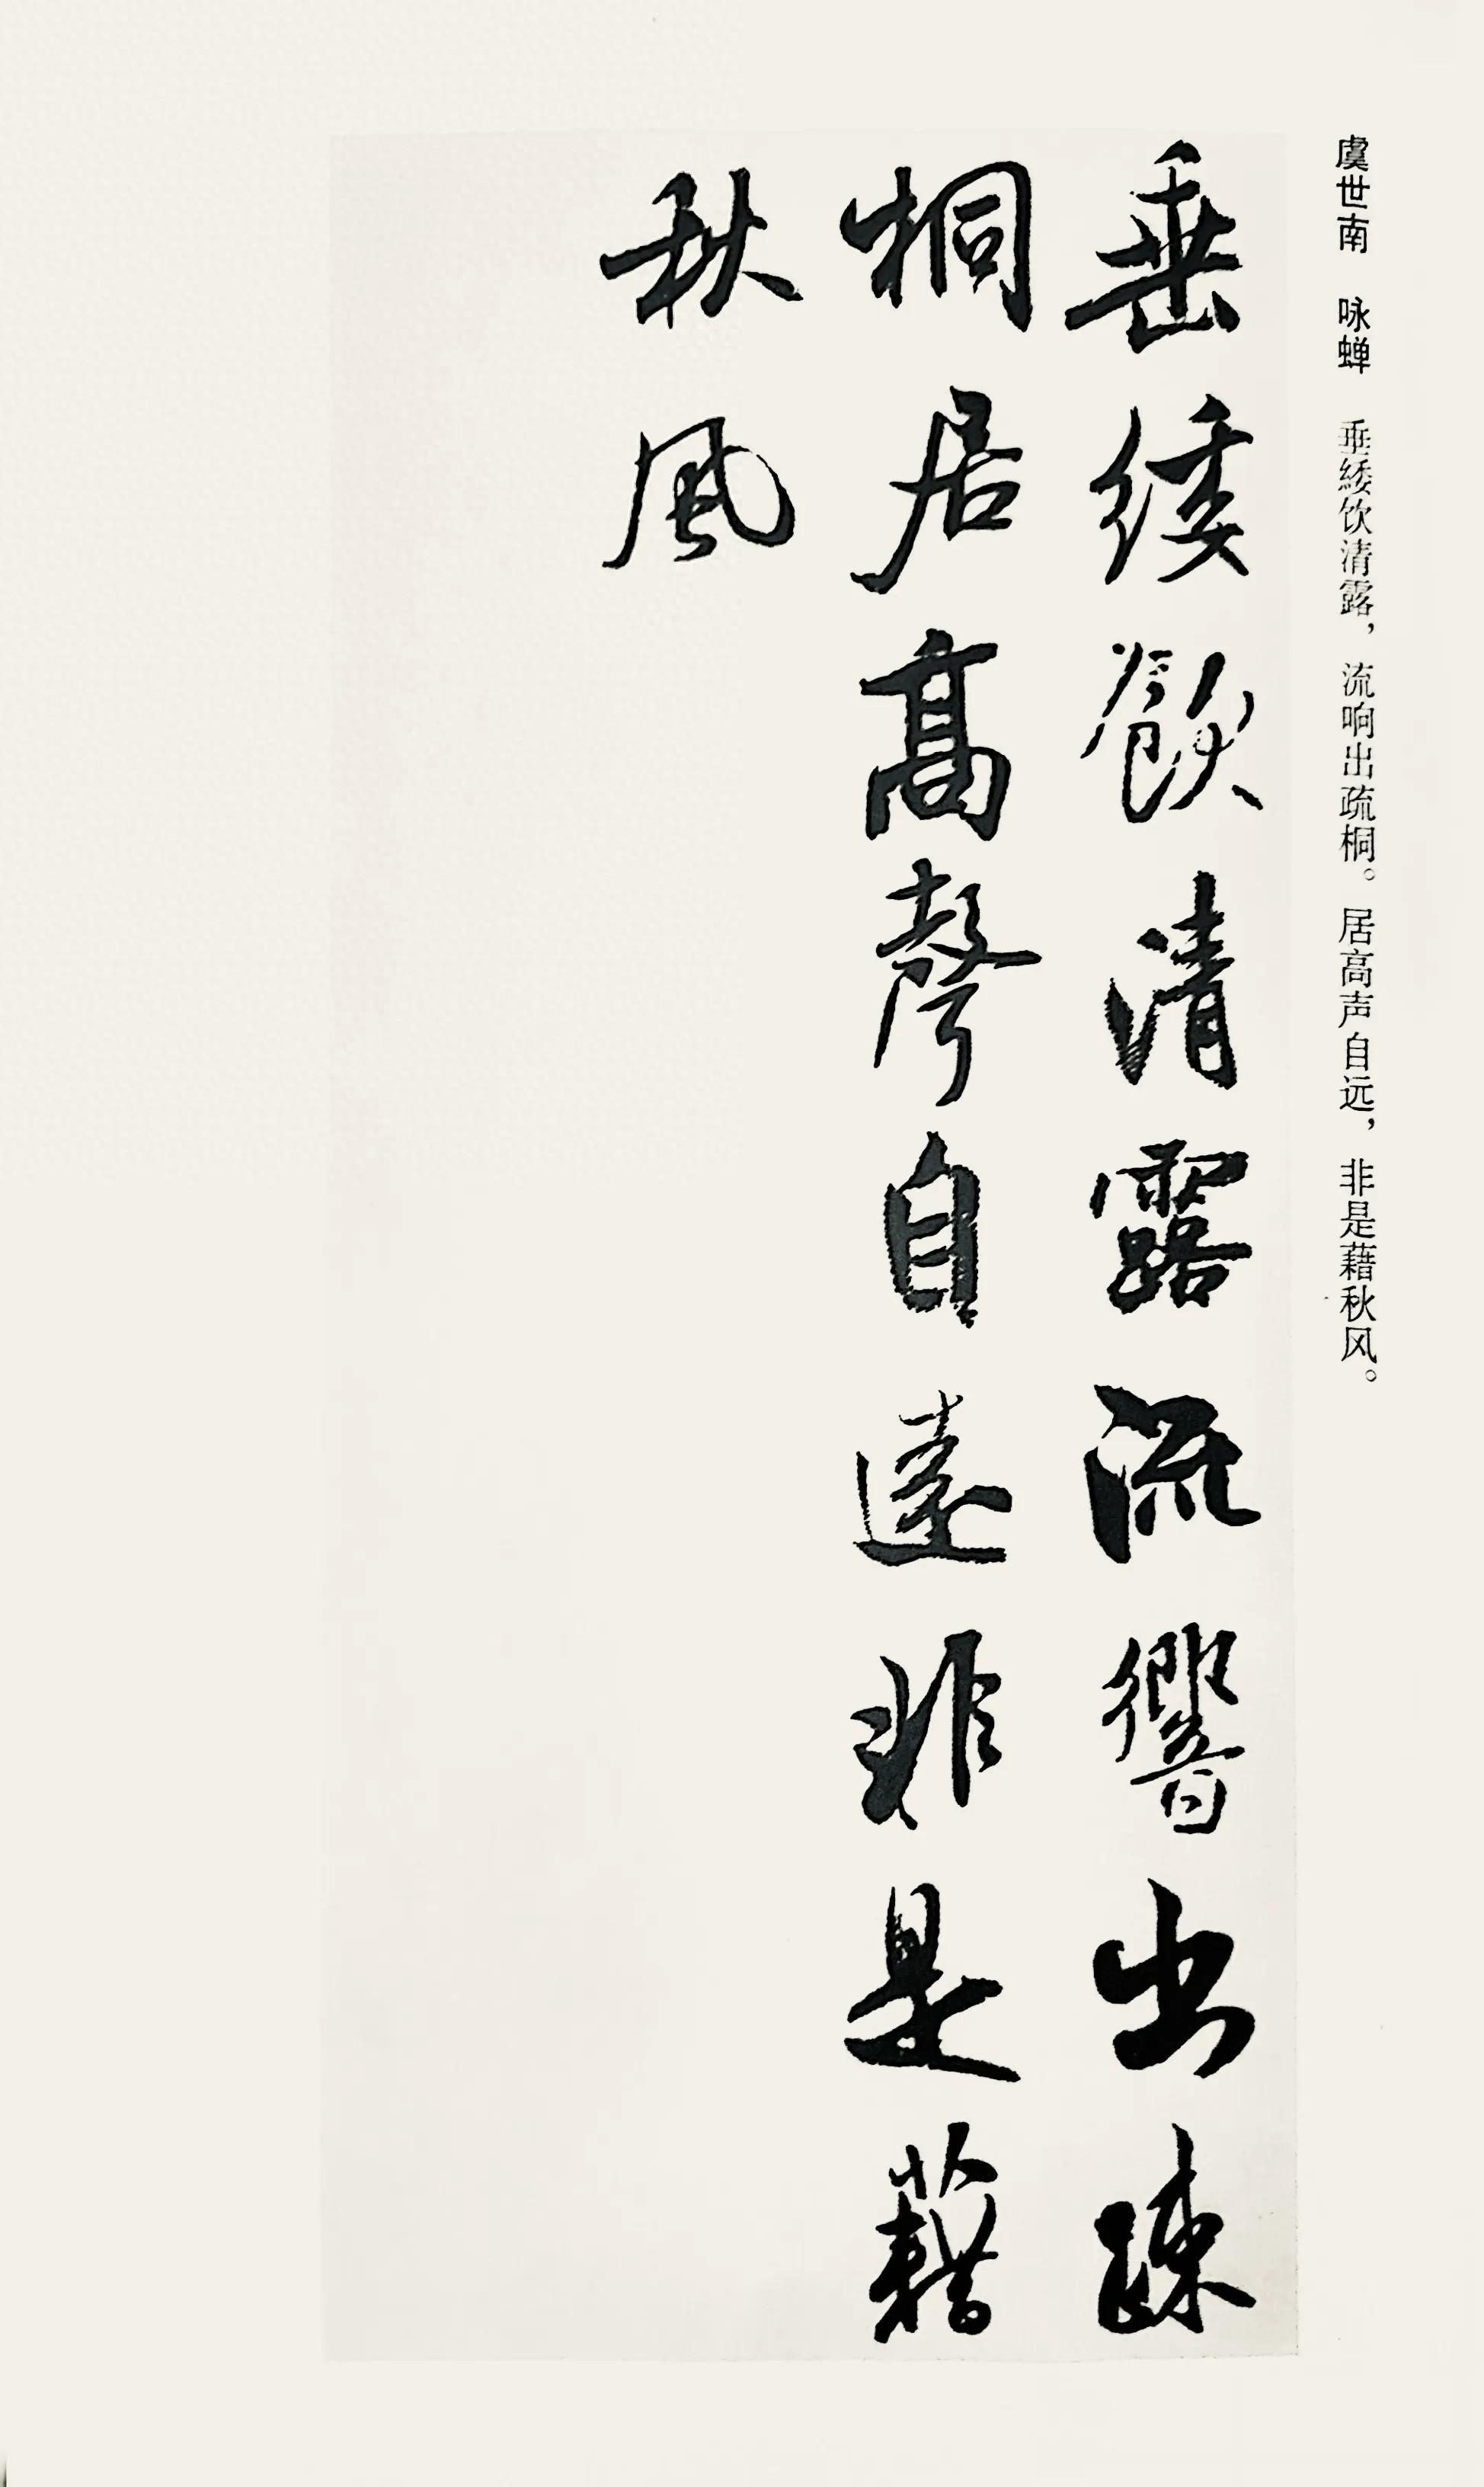 虞世南　咏蝉　垂緌饮清露，流响出疏桐。居高声自远，非是藉秋风。
垂緌飲清露流響出疎
桐居高聲自遠非是藉
秋風